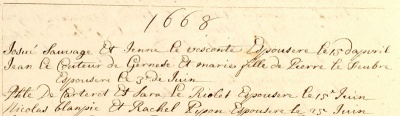 1668
Josué Sauvage Et Jenne Le vesconte Espousere le 15 d'avril
Jean le Couteur de Gernese et marie fille de Pierre le Feubre
Espousere le 3e de Juin
Phle De Carteret et Sara le Riolet Espousere le 15e Juin
Nicolas blanpié Et Rachel Espousere le 25e Juin